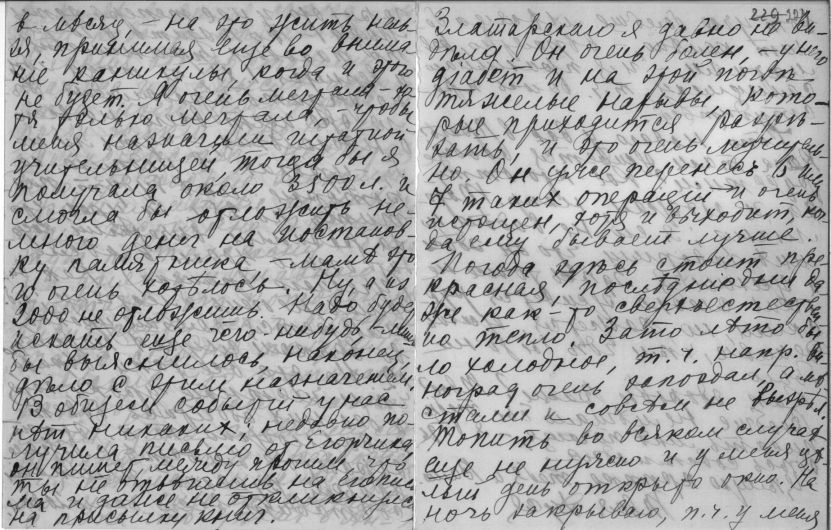 в месяц, – на это жить нель-
зя, принимая еще во внима
ніе каникулы, когда и этого
не будет. Я очень мечтала – хо
тя только мечтала, – чтобы
меня назначили штатной
учительницей, тогда бы я
получала около 3500 л. и
смогла бы отложить не-
много денег на постанов-
ку памятника – мамѣ это
и очень хотѣлось. Ну, а из
2000 не отложишь. Надо буде
искать еще чего-нибудь –
бы выяснилось, наконец,
дѣло с этим назначением.
В общем событій у нас
нѣт никаких; недавно по-
лучила письмо от Егорчика
он пишет между прочим что
ты не отвѣчаешь на его пись
ма и даже не откликнулся
на присылку книг.
229
Златарскаго я давно не ви-
дѣла. Он очень болен, – у него
діабет и на этой почвѣ
тяжелые нарывы, кото-
рые приходится разрѣ-
зать, и это очень мучитель-
но. Он уже перенесъ
7 таких операцій и очень
истощен, хотя и выходит, ког
да ему бывает лучше.
Погода здѣсь стоит пре
красная, послѣдніе дни да
же как-то сверхъестествен
но тепло. Зато лѣто бы
ло холодное, т. ч. напр. ви-
ноград очень запоздал, а мѣ
стами и совсѣм не вызрѣл.
Топить во всяком случаѣ
еще не нужно и у меня цѣ-
лый день открыто окно. На
ночь закрываю, п. ч. у меня